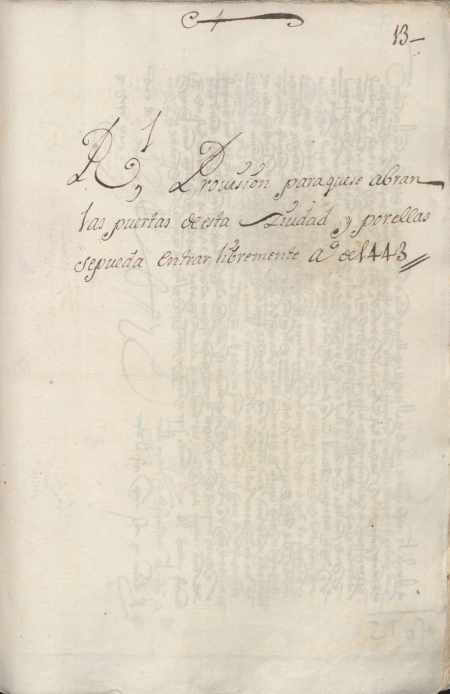 13
Rl Provission para que se abran
las puertas de esta Ziudad, y por ellas
se pueda entrar libremente aº de 1443